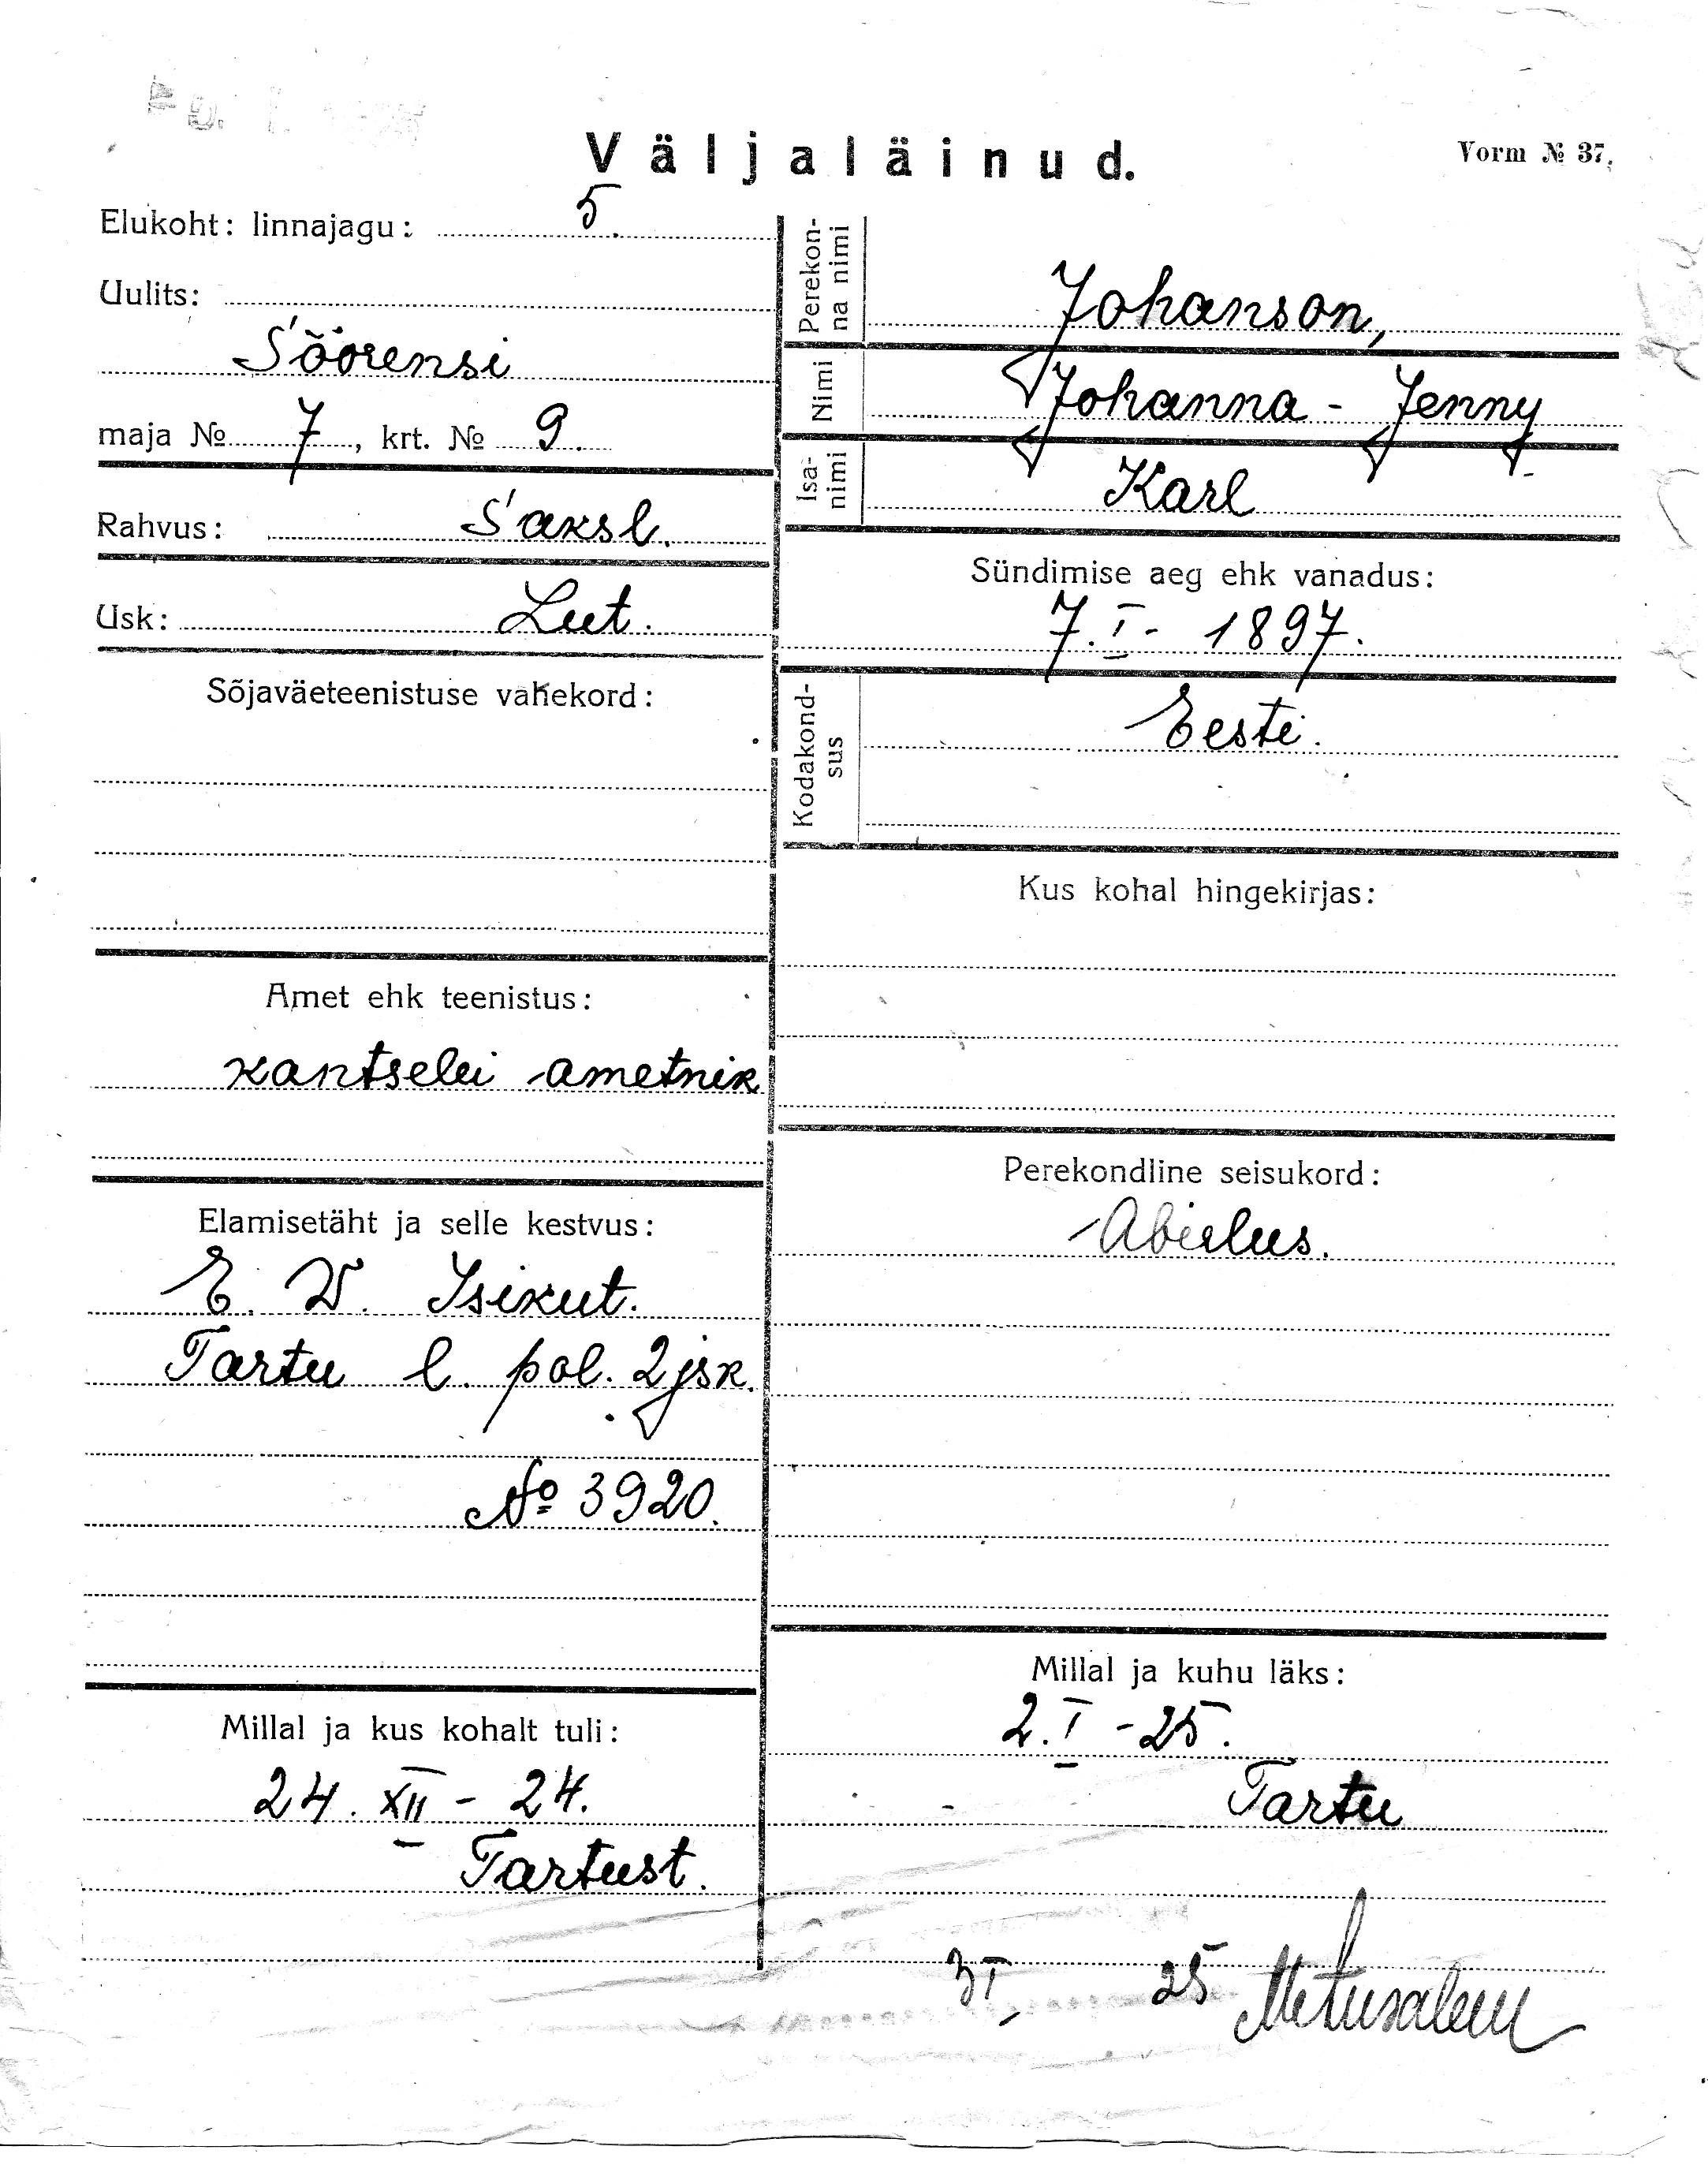 Väljaläinud.
Vorm № 37.
Elukoht: linnajagu: 5.
Uulits:
Söörensi
maja № 7, krt. № 9.
Rahvus: Saksl.
Usk: Lut.
Sõjaväeteenistuse vahekord:
Amet ehk teenistus:
kantselei ametnik
Elamisetäht ja selle kestvus:
E. W. Isikut.
Tartu l. pol. 2 jsk.
№ 3920.
Millal ja kus kohalt tuli:
24. XII - 24.
Tartust.
Perekonna nimi Johanson,
Nimi Johanna - Jenny
Isanimi Karl
Sündimise aeg ehk vanadus:
7. I - 1897.
Kodakondsus Eesti.
Kus kohal hingekirjas:
Perekondline seisukord:
Abielus.
Millal ja kuhu läks:
2. I - 25.
Tartu
3 I 25 Metusalem